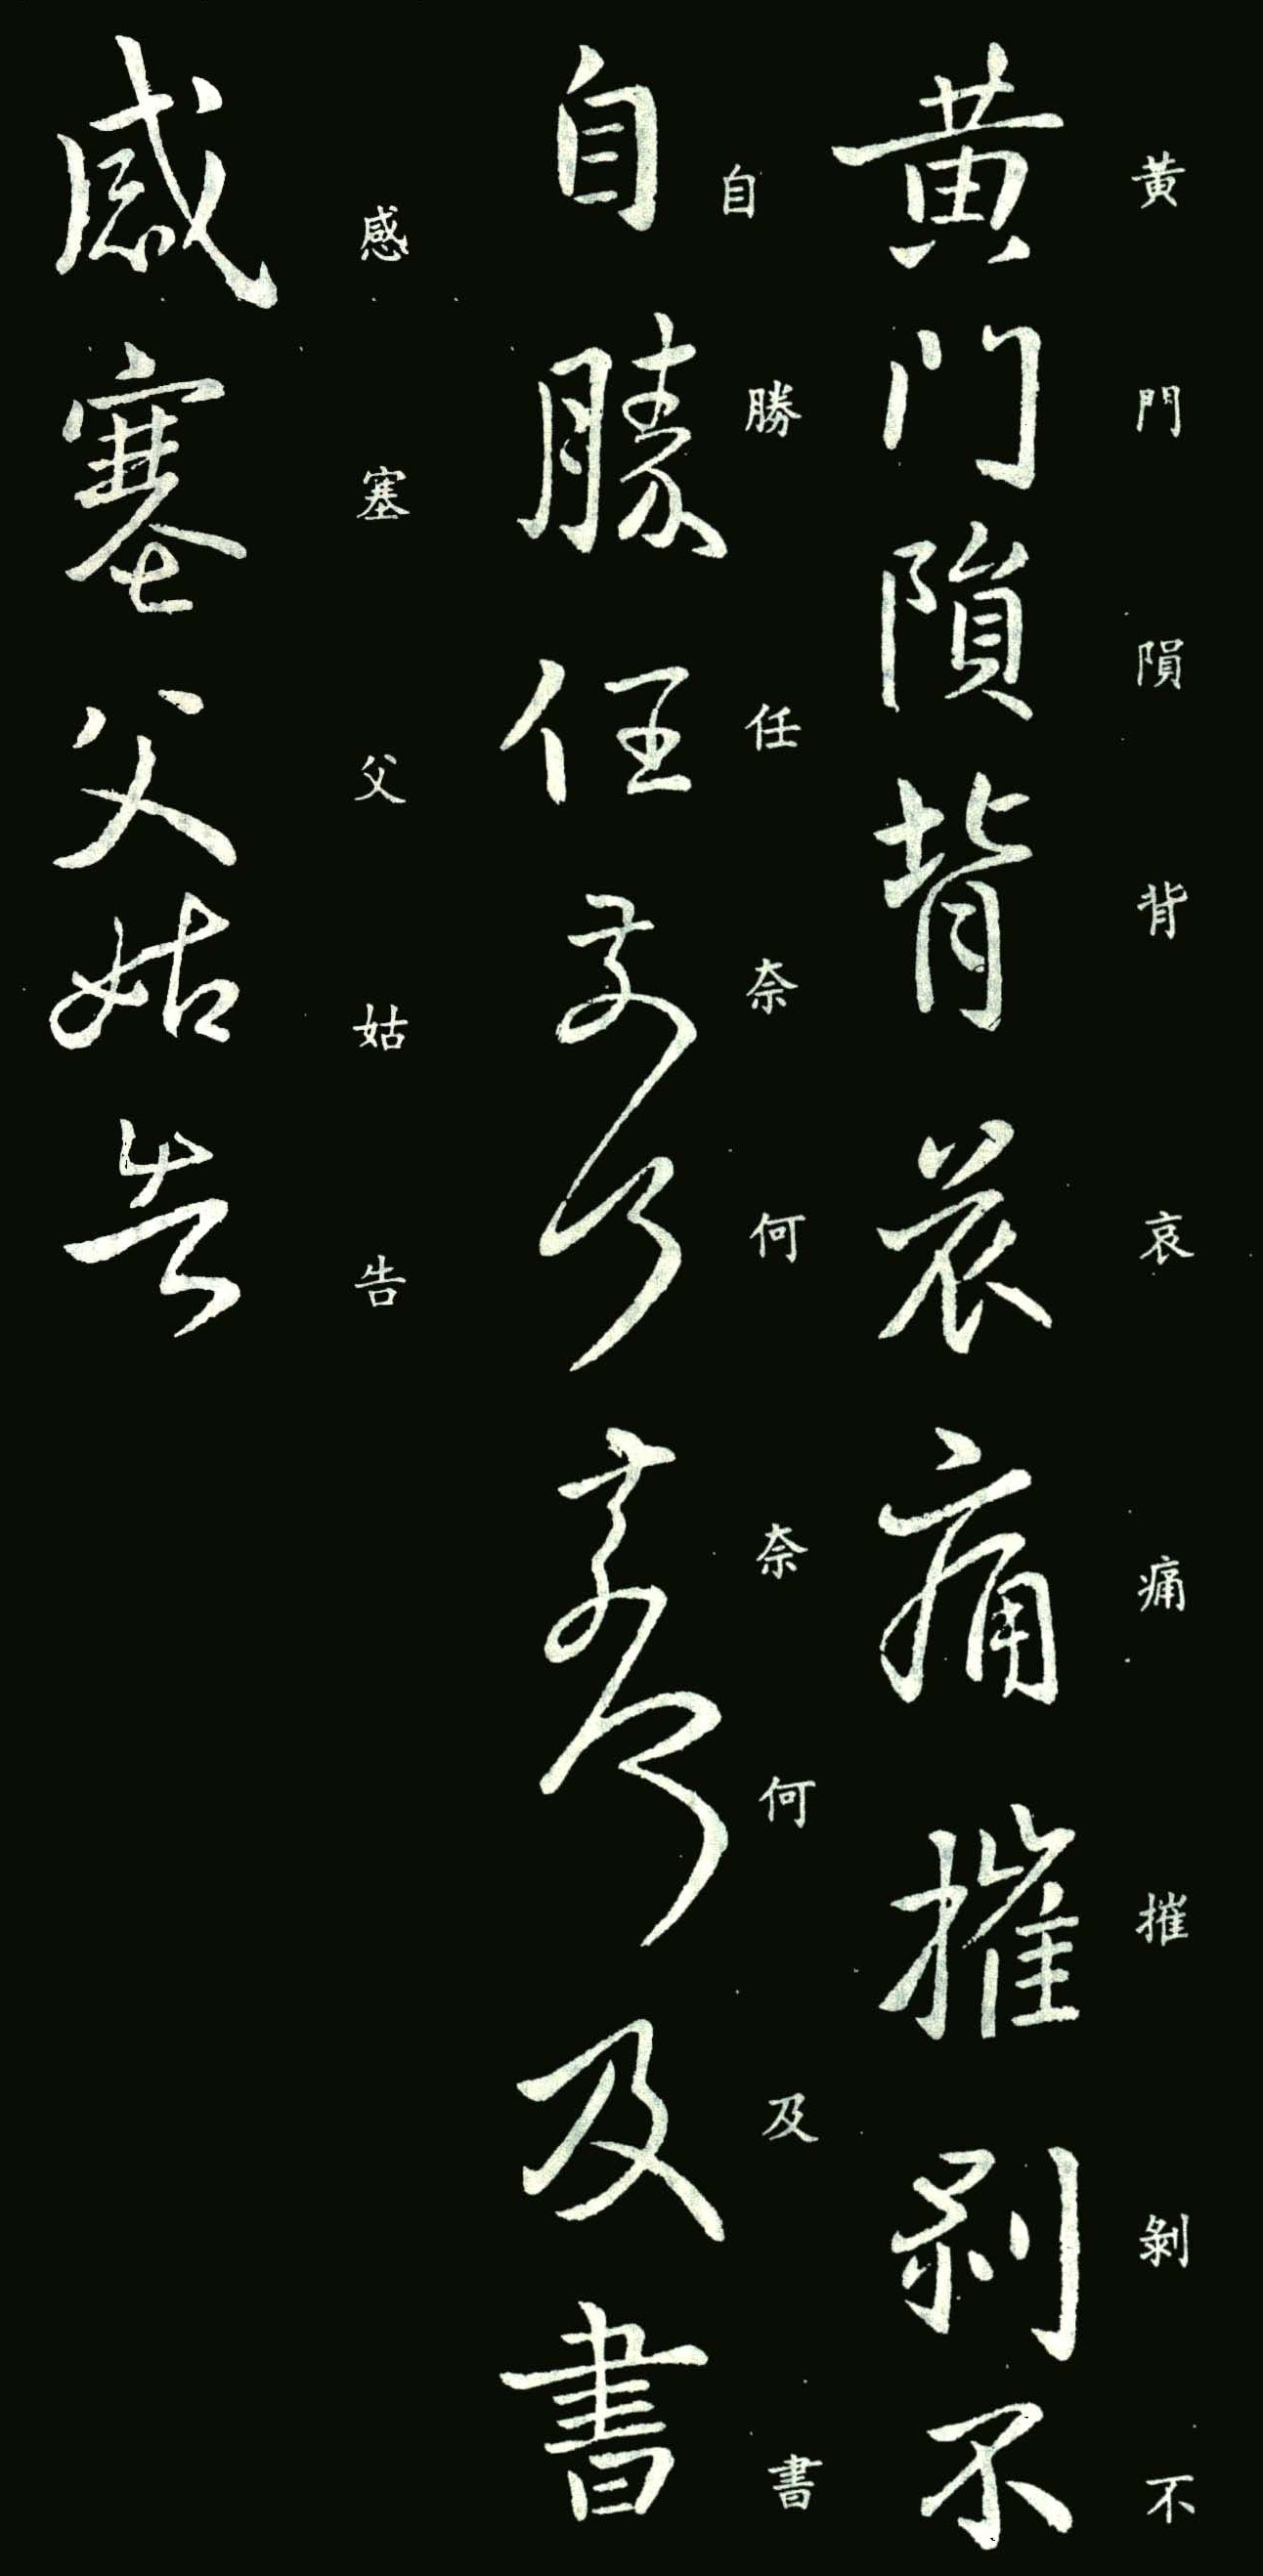 黃門隕背哀痛摧剝不
黃門隕背哀痛摧剝不
自勝任奈何奈何及書
自勝任奈何奈何及書
感塞父姑告
感塞父姑告